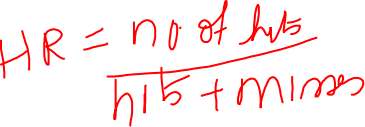 HR = no. of hits
hits + misses